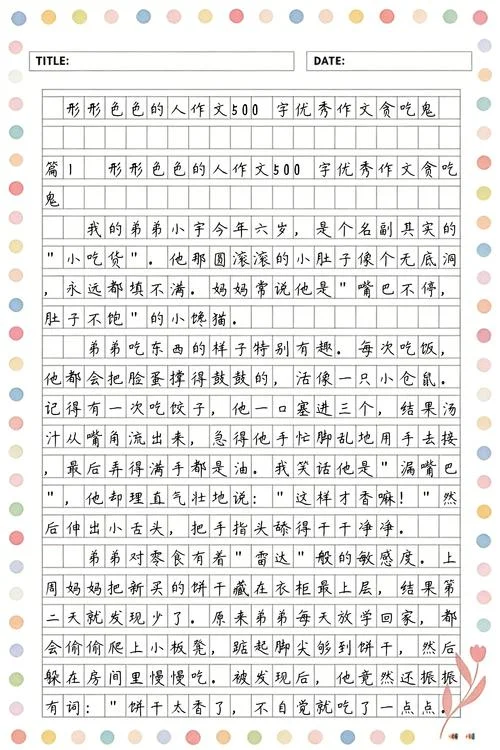 TITLE:
DATE:
形形色色的人作文500 字优秀作文贪吃鬼
篇1 形形色色的人作文500 字优秀作文贪吃
鬼
我的弟弟小宇今年六岁，是个名副其实的
"小吃货"。他那圆滚滚的小肚子像个无底洞
，永远都填不满。妈妈常说他是"嘴巴不停，
肚子不饱"的小馋猫。
弟弟吃东西的样子特别有趣。每次吃饭，
他都会把脸蛋撑得鼓鼓的，活像一只小仓鼠。
记得有一次吃饺子，他一口塞进三个，结果汤
汁从嘴角流出来，急得他手忙脚乱地用手去接
，最后弄得满手都是油。我笑话他是"漏嘴巴
"，他却理直气壮地说："这样才香嘛！"然
后伸出小舌头，把手指头舔得干干净净。
弟弟对零食有着"雷达"般的敏感度。上
周妈妈把新买的饼干藏在衣柜最上层，结果第
二天就发现少了。原来弟弟每天放学回家，都
会偷偷爬上小板凳，踮起脚尖够到饼干，然后
躲在房间里慢慢吃。被发现后，他竟然还振振
有词："饼干太香了，不自觉就吃了一点点。